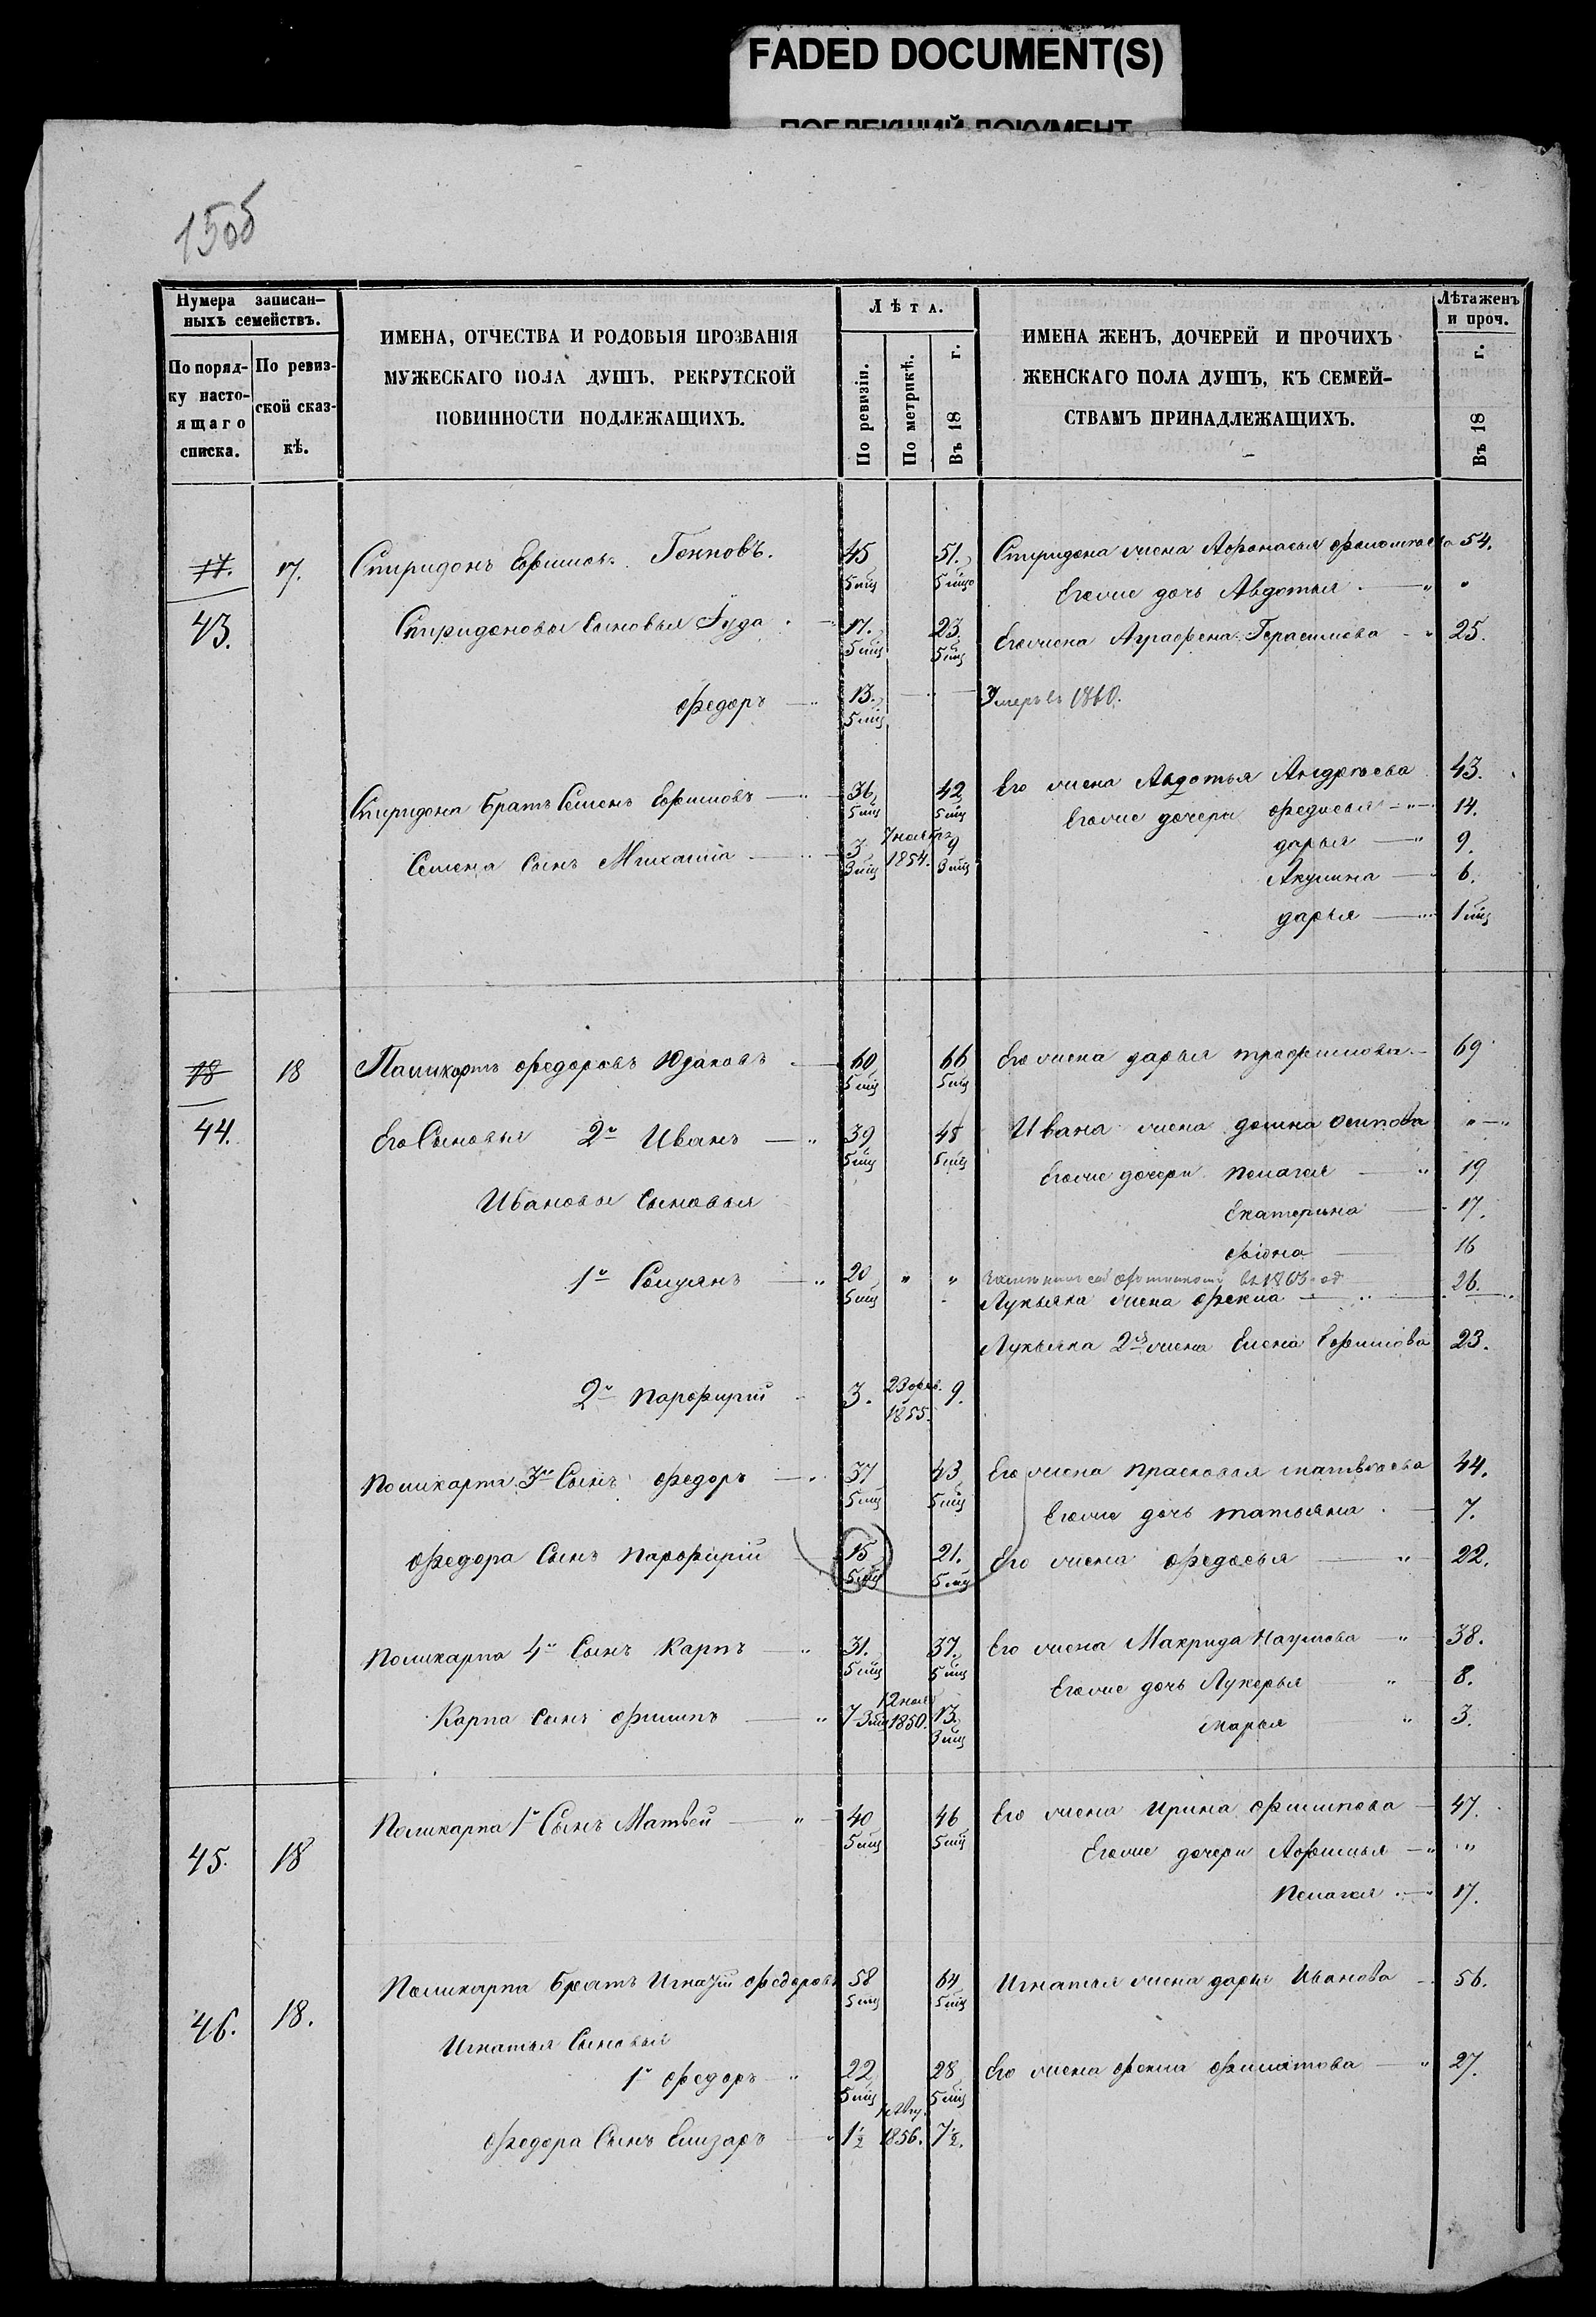 FADED DOCUMENT(S)
ПОБЛЕКШИЙ ДОКУМЕНТ
150б
Нумера записан-
ныхъ семействъ.
По поряд-
ку насто-
ящаго
списка.
По ревиз-
ской сказ-
кѣ.
ИМЕНА, ОТЧЕСТВА И РОДОВЫЯ ПРОЗВАНІЯ
МУЖЕСКАГО ПОЛА ДУШЪ, РЕКРУТСКОЙ
ПОВИННОСТИ ПОДЛЕЖАЩИХЪ.
Лѣта.
По ревизіи.
По метрикѣ.
Въ 18 г.
ИМЕНА ЖЕНЪ, ДОЧЕРЕЙ И ПРОЧИХЪ
ЖЕНСКАГО ПОЛА ДУШЪ, КЪ СЕМЕЙ-
СТВАМЪ ПРИНАДЛЕЖАЩИХЪ.
Лѣта женъ
и проч.
Въ 18 г.
17. 17. Спиридонъ Ефимовъ 45 51. Спиридона жена Афонасья 54.
5 мц 5 мцо Его же дочь Авдотья "
43. Спиридоновы Сыновья Іуда 17. 23. Его жена Аграфена Герасимова 25.
5 мц 5 мц
Федоръ 13. Умеръ въ 1860.
5 мц
Спиридона братъ Семенъ Ефимовъ 36 42 Его жена Авдотья Андреева 43.
5 мц 5 мц Его же дочери Федосья 14.
Семена Сынъ Михаила 3 7 1854. 9 дарья 9.
3 мц 3 мц Акулина 6.
дарья 1 мц
18 18 Паликарпъ Федоровъ 60 66 Его жена дарья трофимова 69
5 мц 5 мц
44. Его Сыновья 2й Иванъ 39 45 Ивана жена домна осипова "
5 мц 5 мц Его же дочери пелагея 19
Ивановы Сыновья Екатерина 17.
16
1й 20 " " въ 1863 26.
5 мц Лукьяна жена Фекла
Лукьяна 2я жена Елена Ефимова 23.
2й парфирій 3. 23 фев. 1855. 9.
Поликарпа 3й Сынъ Федоръ 37 43 Его жена прасковья матвеева 44.
5 мц 5 мц Его же дочь татьяна 7.
Федора Сынъ парфирій 15 21. Его жена Федосья 22.
5 мц 5 мц
Поликарпа 4й Сынъ Карпъ 31. 37. Его жена Макрида Наумова 38.
5 мц 5 мц Его же дочь Лукерья 8.
Карпа Сынъ Филипъ 7 12 1850. 13. марья 3.
3 мц 3 мц
45. 18 Поликарпа 1й Сынъ Матвей 40 46 Его жена Ирина Филипова 47.
5 мц 5 мц Его же дочери Афимья "
Пелагея 17.
46. 18. Поликарпа братъ Игнатій Федоровъ 58 64 Игнатья жена дарья Иванова 56.
5 мц 5 мц
Игнатья Сыновья
1й Федоръ 22 28 Его жена Фекла Филатова 27.
5 мц 5 мц
Федора Сынъ Елизаръ 1½ 1856. 7½.